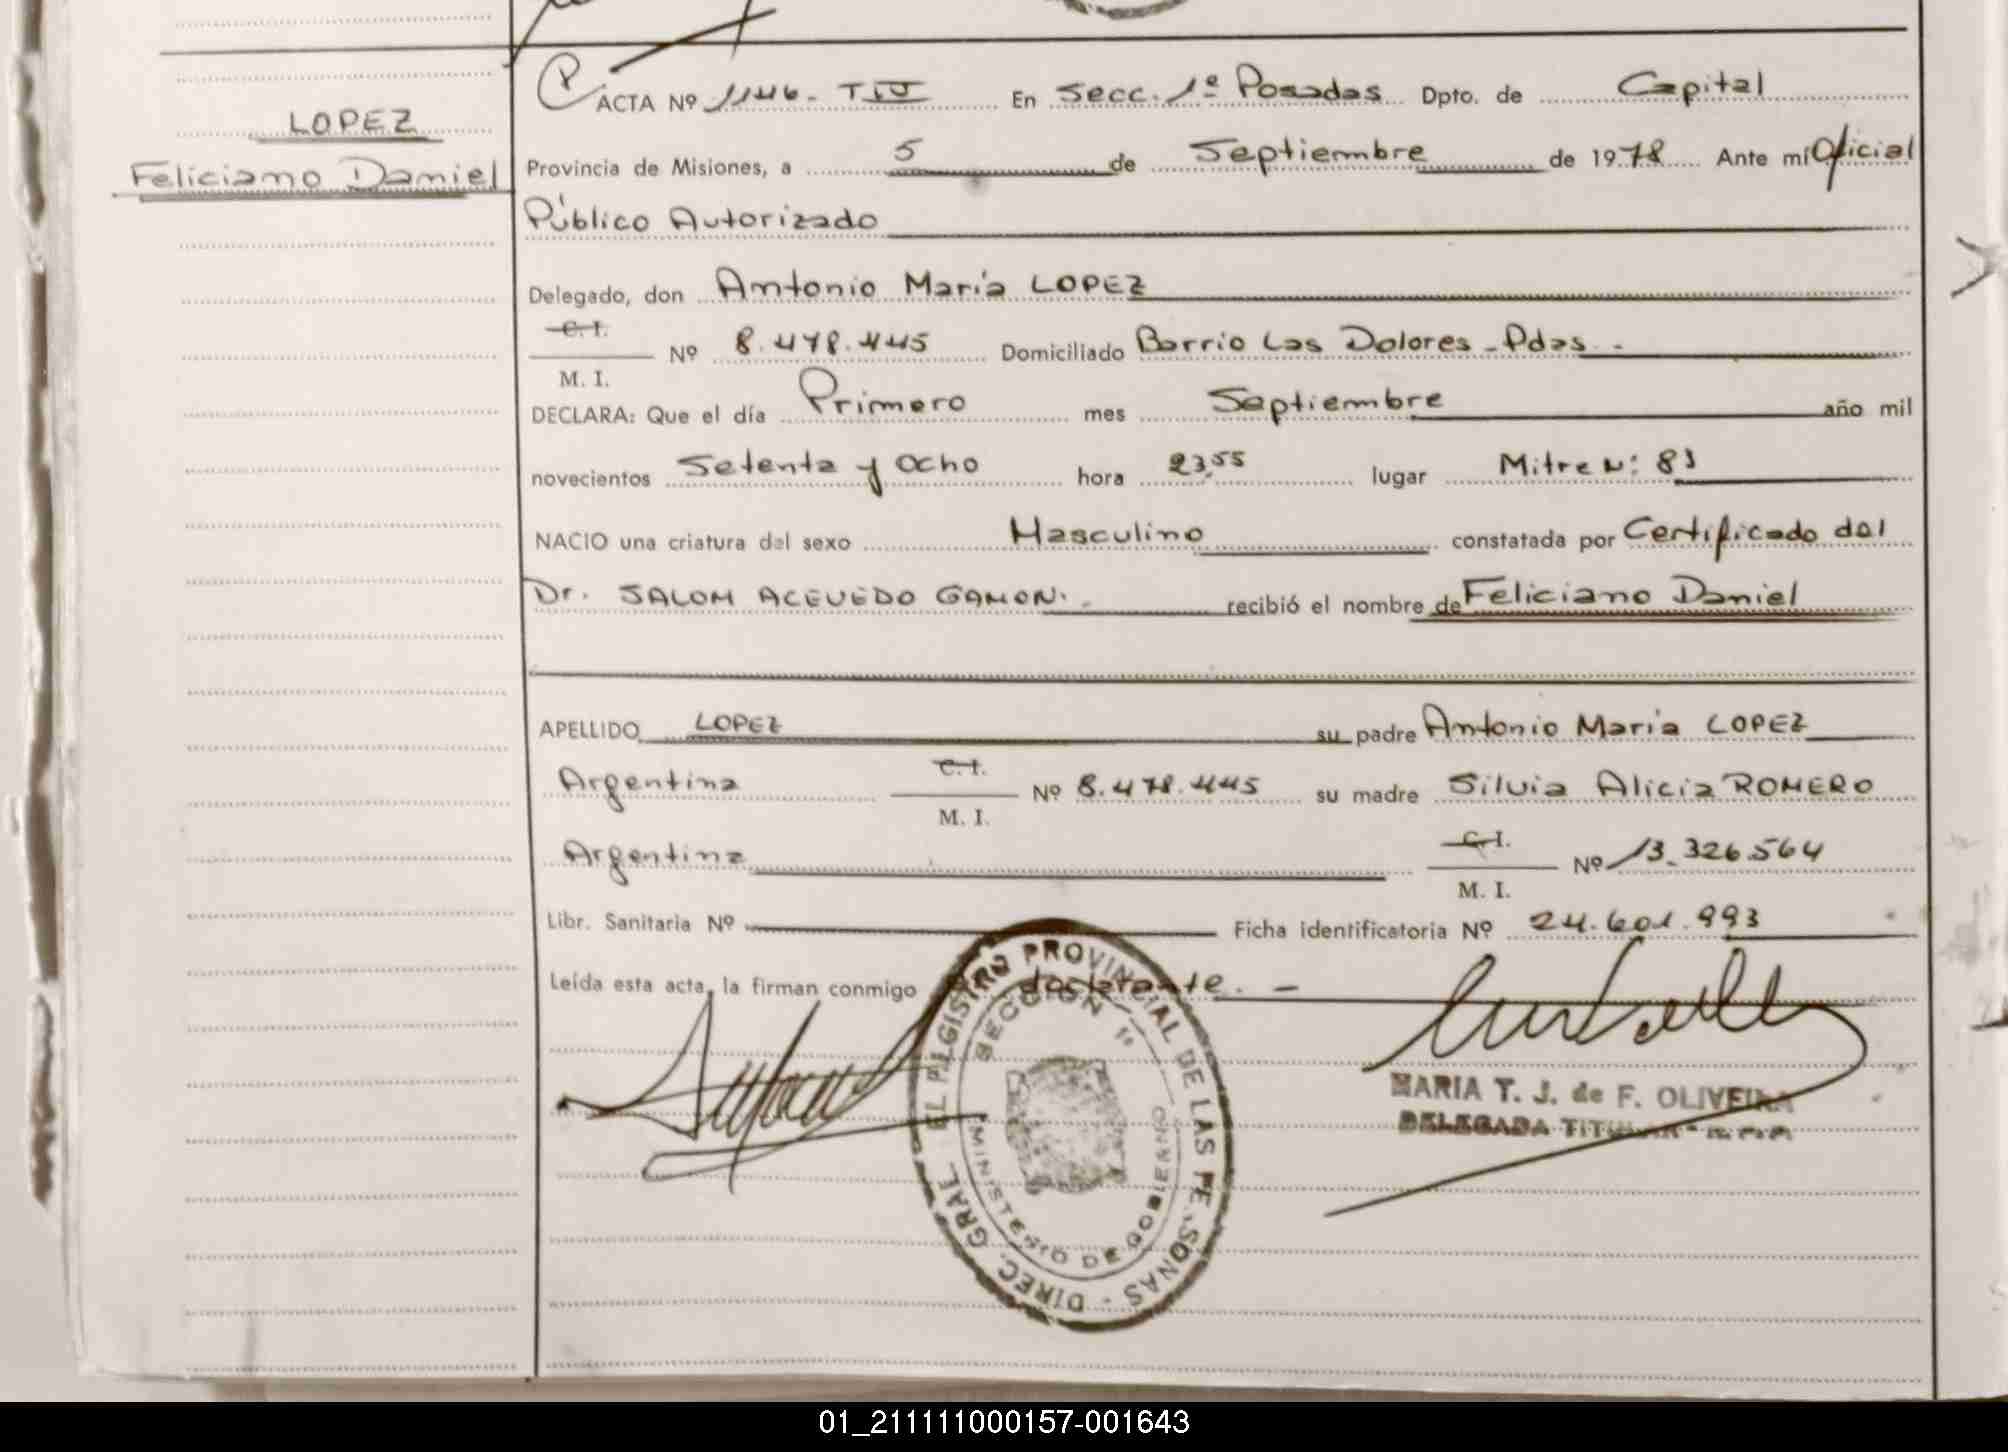 LOPEZ
Feliciano Daniel
ACTA Nº 1146- TIV En Secc. 1º Posadas Dpto. de Capital
Provincia de Misiones, a 5 de Septiembre de 1978 Ante mí Oficial
Público Autorizado
Delegado, don Antonio María LOPEZ
C. I.
M. I. Nº 8.478.445 Domiciliado Barrio Los Dolores - Pdas.-
DECLARA: Que el día Primero mes Septiembre año mil
novecientos Setenta y Ocho hora 23,55 lugar Mitre N: 81
NACIO una criatura del sexo Masculino constatada por Certificado del
Dr. SALOM ACEVEDO GAMON.- recibió el nombre de Feliciano Daniel
APELLIDO LOPEZ su padre Antonio María LOPEZ
Argentina C. I. M. I. Nº 8.478.445 su madre Silvia Alicia ROMERO
Argentina C. I. M. I. Nº 13.326.564
Libr. Sanitaria Nº Ficha identificatoria Nº 24.601.993
Leída esta acta, la firman conmigo declarante. -
DIREC. GRAL. REGISTRO PROVINCIAL DE LAS PERSONAS
SECCION 1º
MINISTERIO DE GOBIERNO
MARIA T. J. de F. OLIVEIRA
DELEGADA TITULAR
01_211111000157-001643